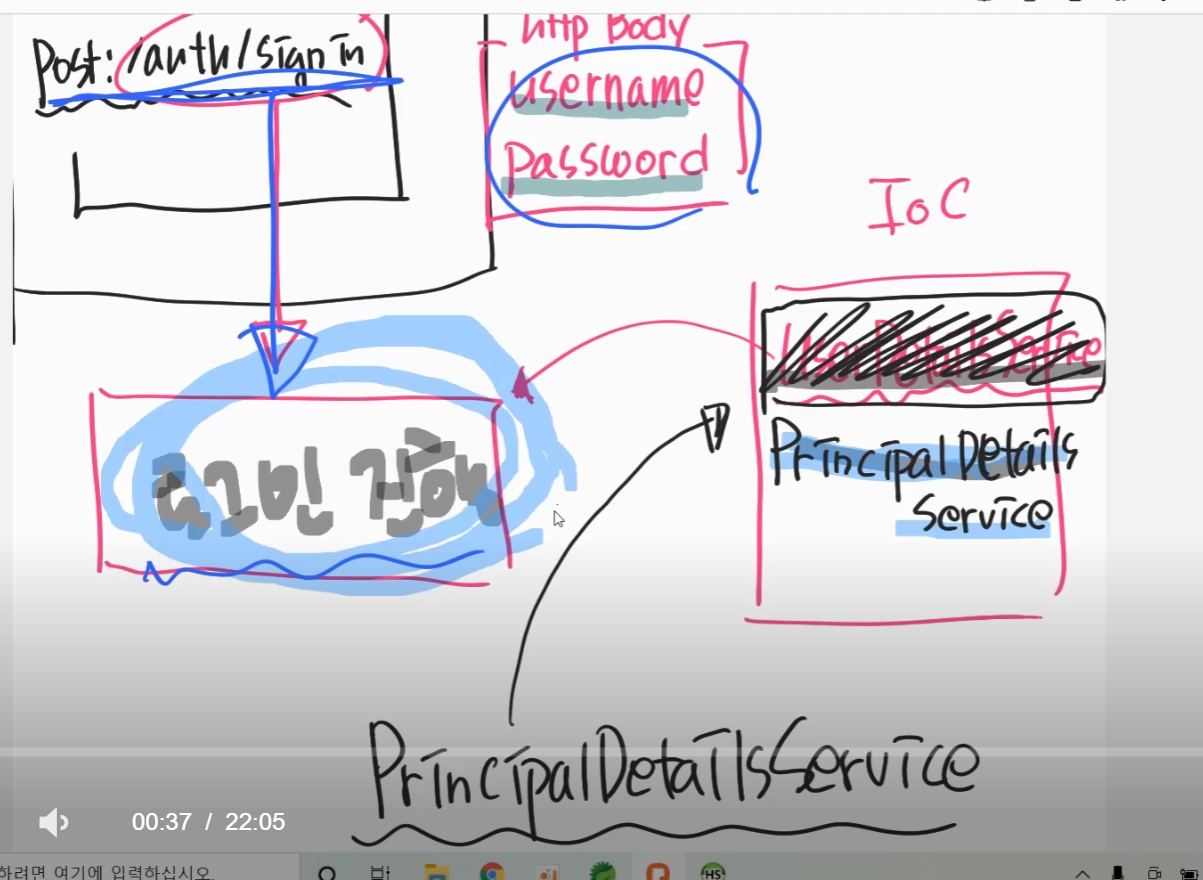 Post: /auth/sign in
http Body
username
password
IoC
UserDetailsService
PrincipalDetails
Service
로그인 진행
PrincipalDetailsService
00:37 / 22:05
하려면 여기에 입력하십시오.
HS